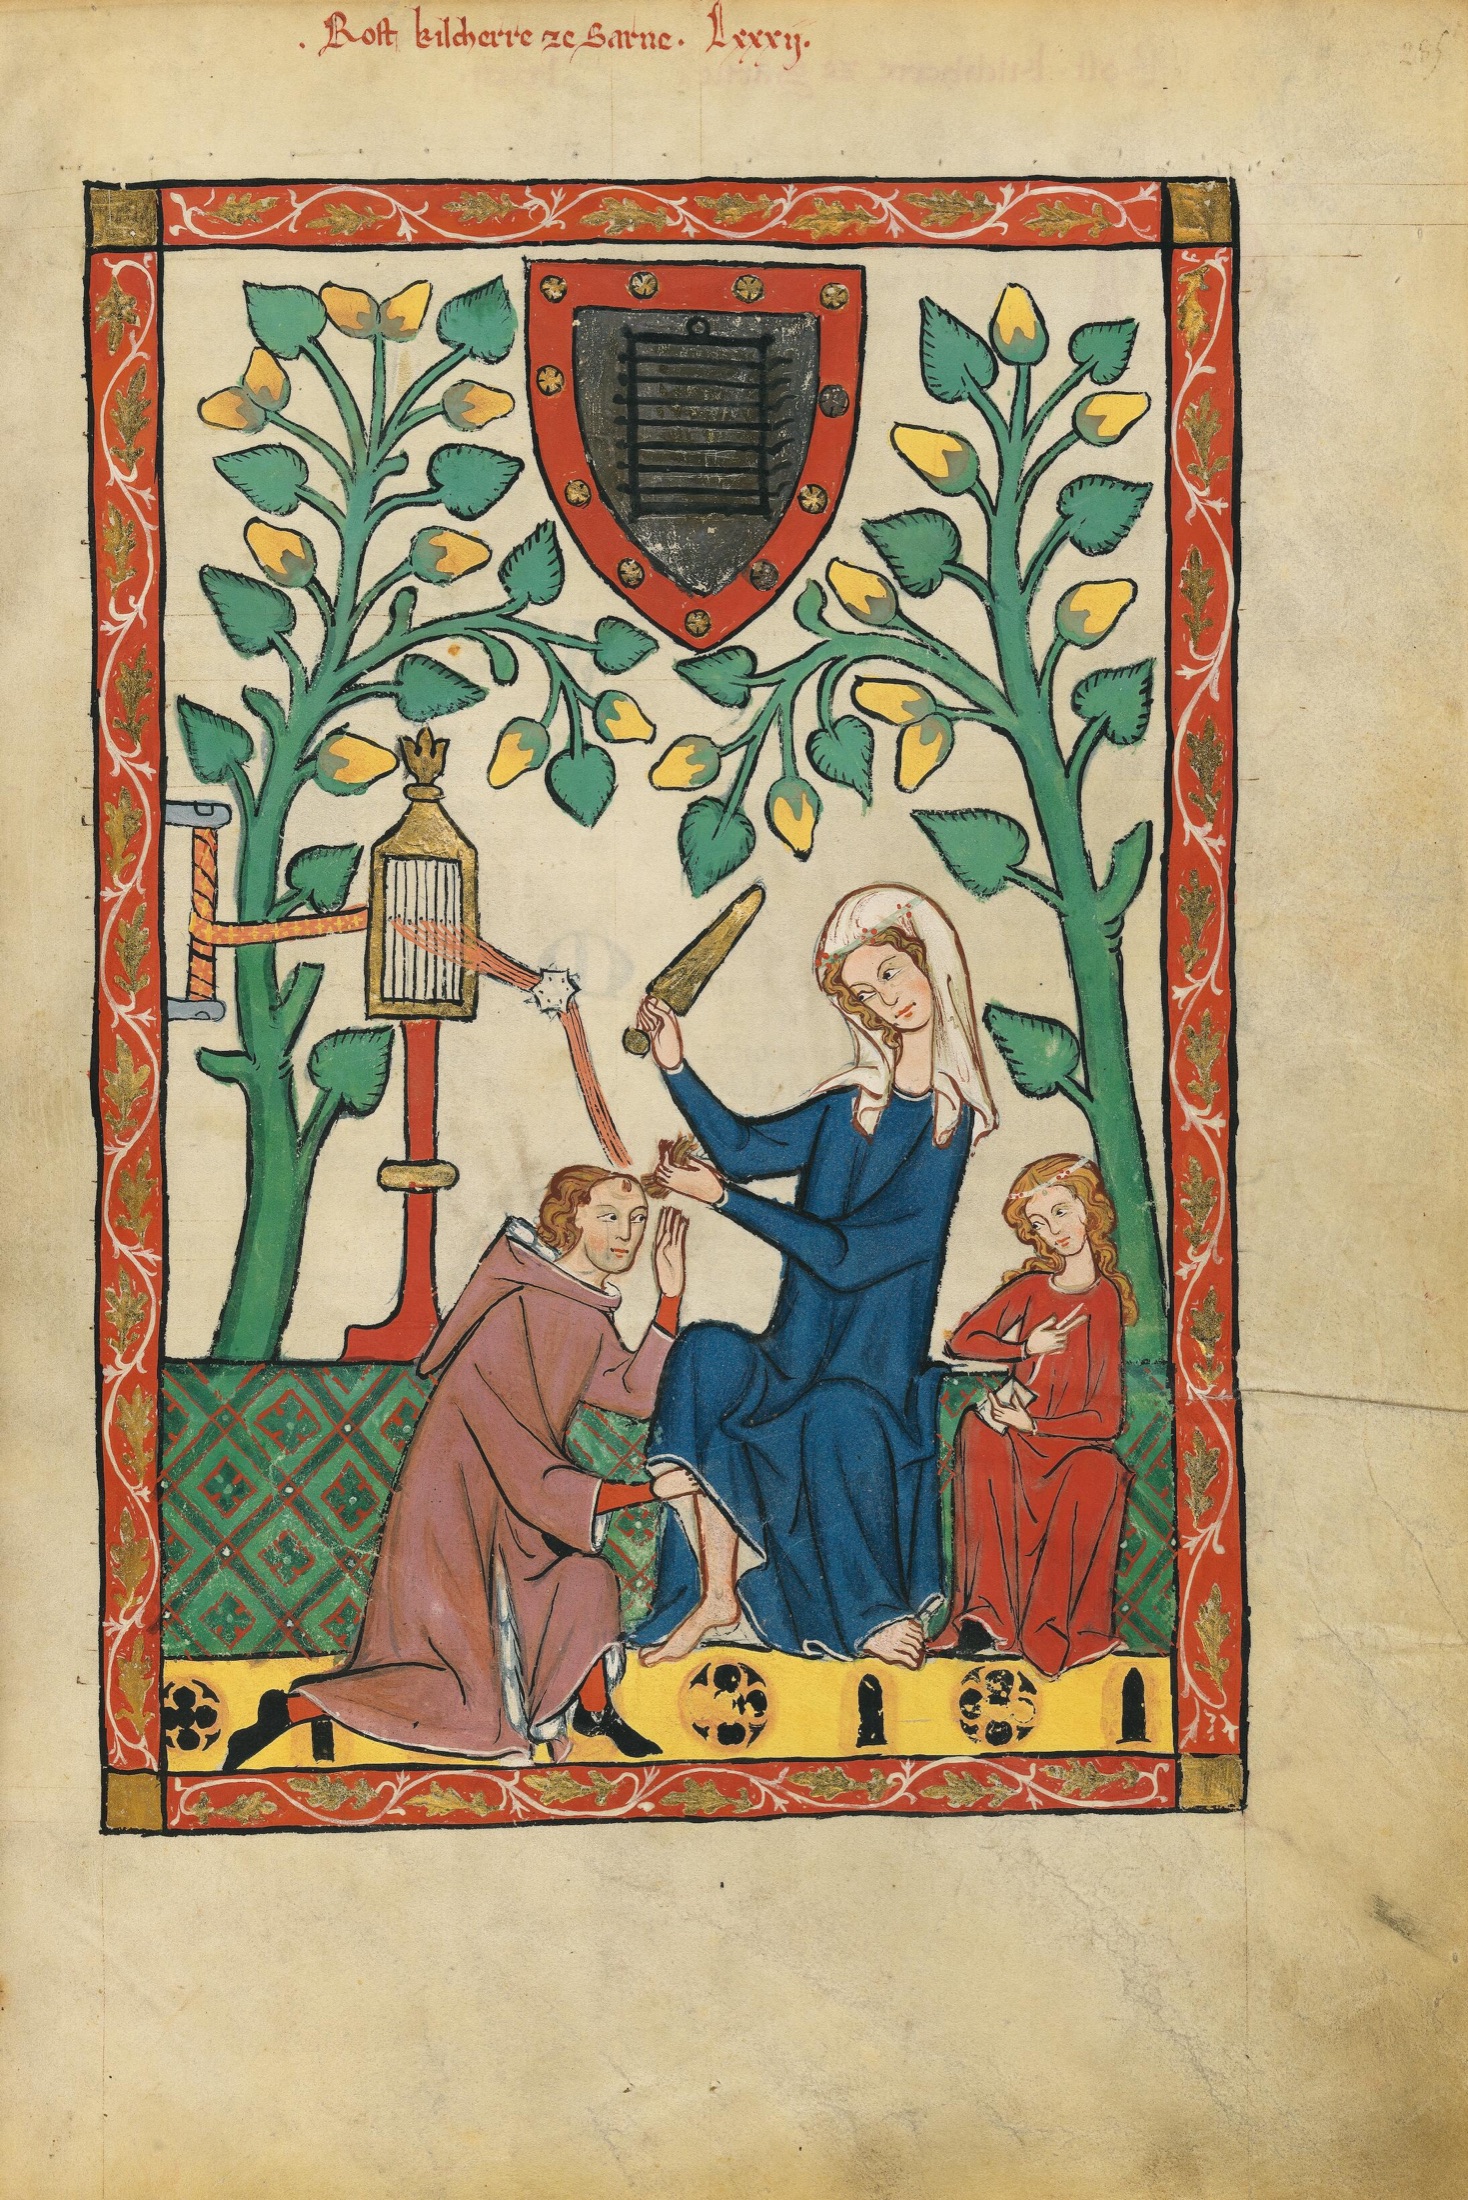 . Rost kilcherre ze Sarne. lxxxij.
285